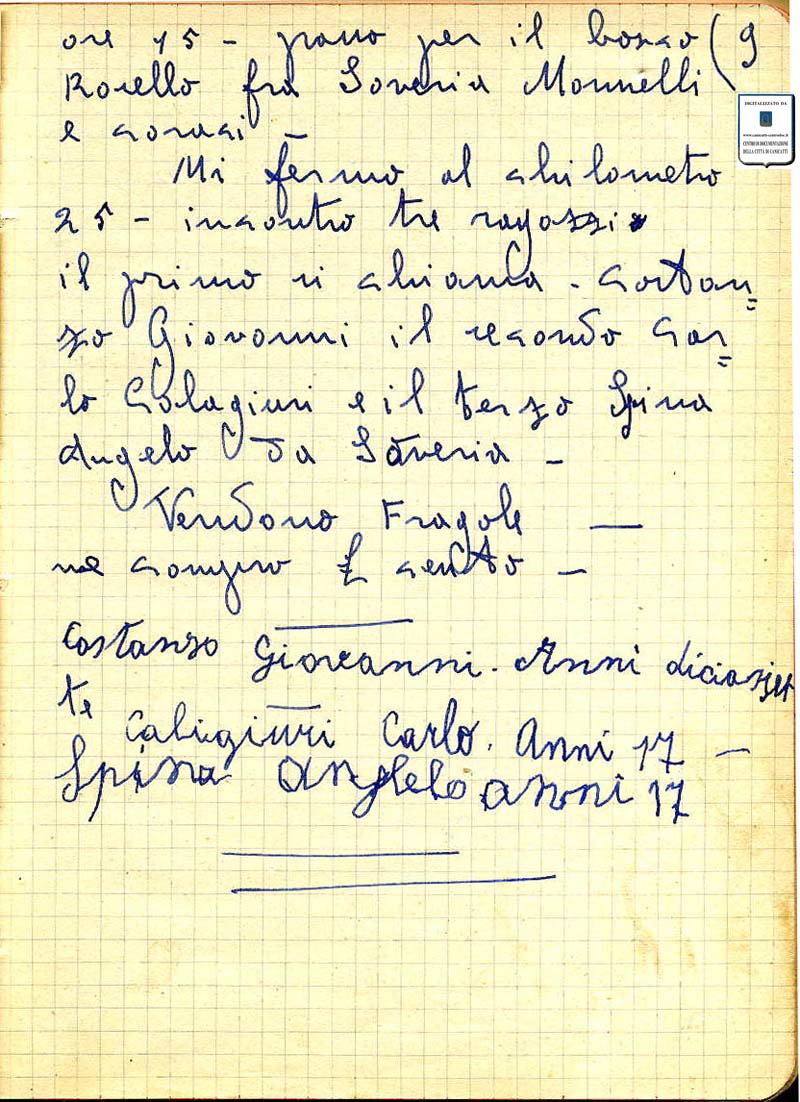 ore 15 - passo per il bosco (9
Rosello fra Soveria Monnelli
e coraci -
Mi fermo al chilometro
25 - incontro tre ragazzi
il primo si chiama - Costan=
zo Giovanni il secondo Car=
lo Colagiuri e il terzo Spina
Angelo da Soveria -
Vendono Fragole —
ne compro £ cento -
Costanzo Giovanni. Anni diciasset
te
Caligiuri Carlo. Anni 17 -
Spina Angelo anni 17
DIGITALIZZATO DA
www.canicatti-centrodoc.it
CENTRO DI DOCUMENTAZIONE
DELLA CITTÀ DI CANICATTÌ